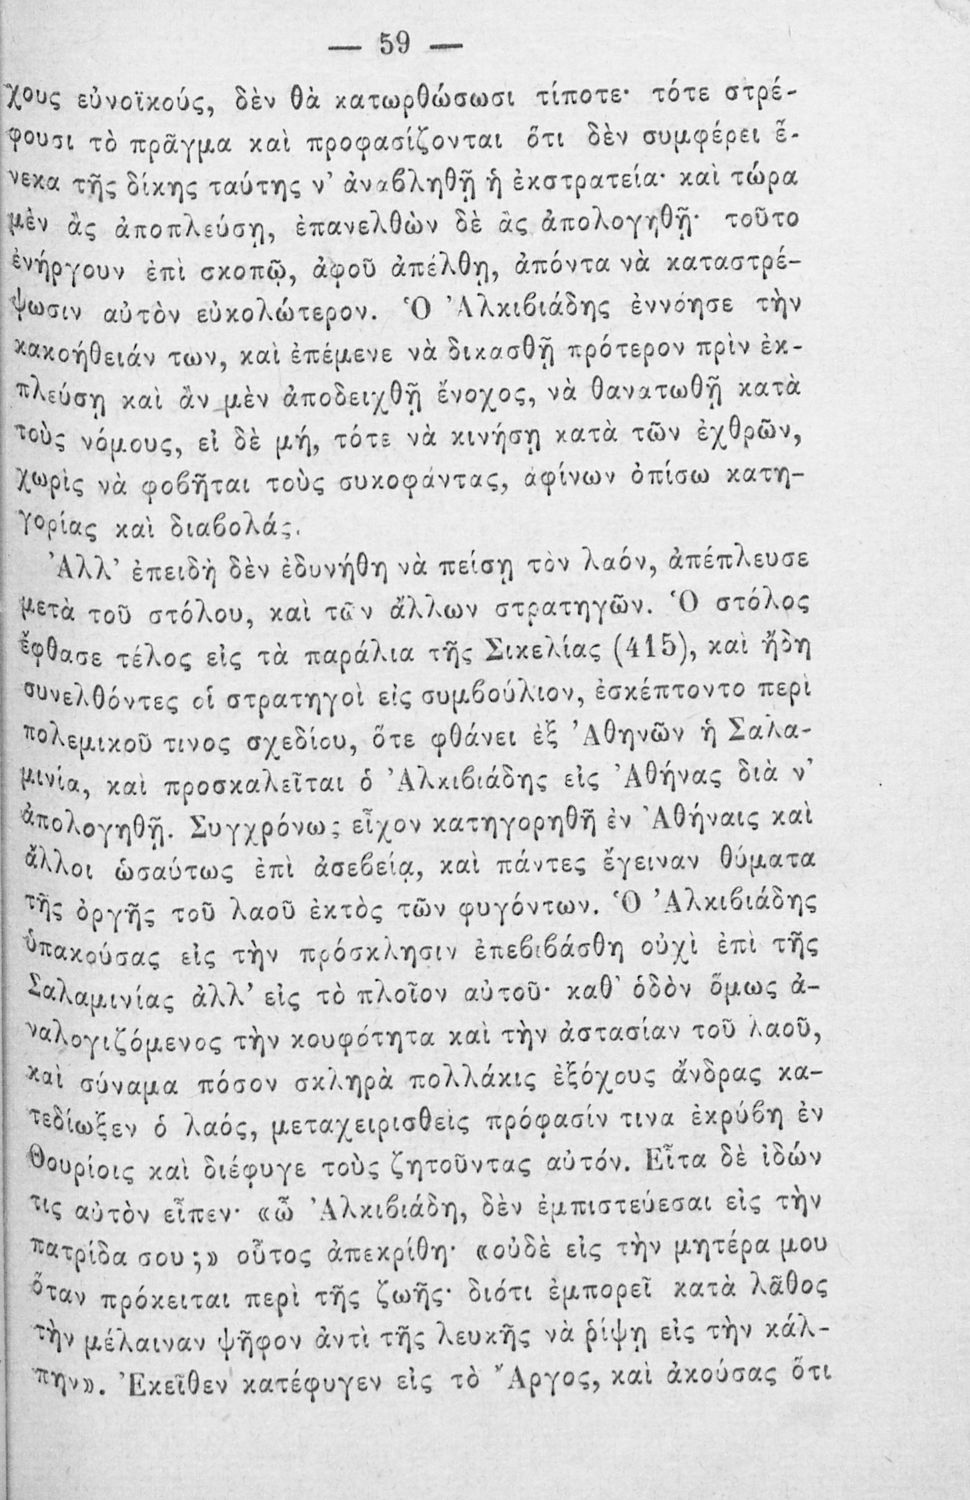 — 59 —
χους εὐνοϊκούς, δὲν θὰ κατωρθώσωσι τίποτε· τότε στρέ-
φουσι τὸ πρᾶγμα καὶ προφασίζονται ὅτι δὲν συμφέρει ἕ-
νεκα τῆς δίκης ταύτης ν’ ἀναβληθῇ ἡ ἐκστρατεία· καὶ τώρα
μὲν ἂς ἀποπλεύσῃ, ἐπανελθὼν δὲ ἂς ἀπολογηθῇ· τοῦτο
ἐνήργουν ἐπὶ σκοπῷ, ἀφοῦ ἀπέλθῃ, ἀπόντα νὰ καταστρέ-
ψωσιν αὐτὸν εὐκολώτερον. Ὁ Ἀλκιβιάδης ἐννόησε τὴν
κακοήθειάν των, καὶ ἐπέμενε νὰ δικασθῇ πρότερον πρὶν ἐκ-
πλεύσῃ καὶ ἂν μὲν ἀποδειχθῇ ἔνοχος, νὰ θανατωθῇ κατὰ
τοὺς νόμους, εἰ δὲ μή, τότε νὰ κινήσῃ κατὰ τῶν ἐχθρῶν,
χωρὶς νὰ φοβῆται τοὺς συκοφάντας, ἀφίνων ὀπίσω κατη-
γορίας καὶ διαβολάς.
Ἀλλ’ ἐπειδὴ δὲν ἐδυνήθη νὰ πείσῃ τὸν λαόν, ἀπέπλευσε
μετὰ τοῦ στόλου, καὶ τῶν ἄλλων στρατηγῶν. Ὁ στόλος
ἔφθασε τέλος εἰς τὰ παράλια τῆς Σικελίας (415), καὶ ἤδη
συνελθόντες οἱ στρατηγοὶ εἰς συμβούλιον, ἐσκέπτοντο περὶ
πολεμικοῦ τινος σχεδίου, ὅτε φθάνει ἐξ Ἀθηνῶν ἡ Σαλα-
μινία, καὶ προσκαλεῖται ὁ Ἀλκιβιάδης εἰς Ἀθήνας διὰ ν’
ἀπολογηθῇ. Συγχρόνως εἶχον κατηγορηθῆ ἐν Ἀθήναις καὶ
ἄλλοι ὡσαύτως ἐπὶ ἀσεβείᾳ, καὶ πάντες ἔγειναν θύματα
τῆς ὀργῆς τοῦ λαοῦ ἐκτὸς τῶν φυγόντων. Ὁ Ἀλκιβιάδης
ὑπακούσας εἰς τὴν πρόσκλησιν ἐπεβιβάσθη οὐχὶ ἐπὶ τῆς
Σαλαμινίας ἀλλ’ εἰς τὸ πλοῖον αὐτοῦ· καθ’ ὁδὸν ὅμως ἀ-
ναλογιζόμενος τὴν κουφότητα καὶ τὴν ἀστασίαν τοῦ λαοῦ,
καὶ σύναμα πόσον σκληρὰ πολλάκις ἐξόχους ἄνδρας κα-
τεδίωξεν ὁ λαός, μεταχειρισθεὶς πρόφασίν τινα ἐκρύβη ἐν
Θουρίοις καὶ διέφυγε τοὺς ζητοῦντας αὐτόν. Εἶτα δὲ ἰδών
τις αὐτὸν εἶπεν· «ὦ Ἀλκιβιάδη, δὲν ἐμπιστεύεσαι εἰς τὴν
πατρίδα σου;» οὗτος ἀπεκρίθη· «οὐδὲ εἰς τὴν μητέρα μου
ὅταν πρόκειται περὶ τῆς ζωῆς· διότι ἐμπορεῖ κατὰ λᾶθος
τὴν μέλαιναν ψῆφον ἀντὶ τῆς λευκῆς νὰ ῥίψῃ εἰς τὴν κάλ-
πην». Ἐκεῖθεν κατέφυγεν εἰς τὸ Ἄργος, καὶ ἀκούσας ὅτι